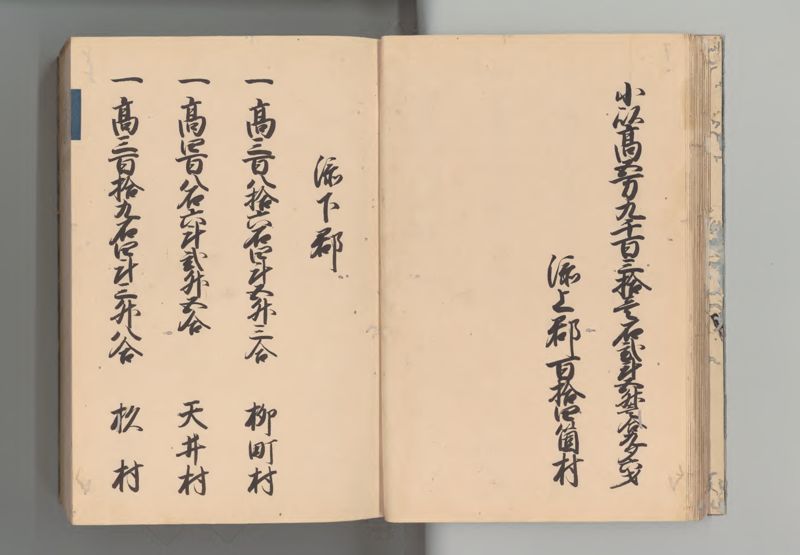 小以高五万九千百三拾壱石弐斗五升
添上郡百拾四箇村
添下郡
一高三百八拾六石四斗五升三合 柳町村
一高四百八石六斗弐升五合 天井村
一高三百拾九石四斗三升八合 杉村